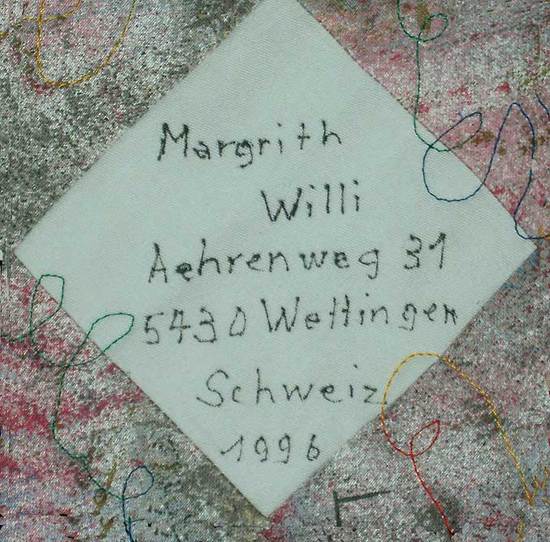 Margrith
Willi
Aehrenweg 31
5430 Wettingen
Schweiz
1996